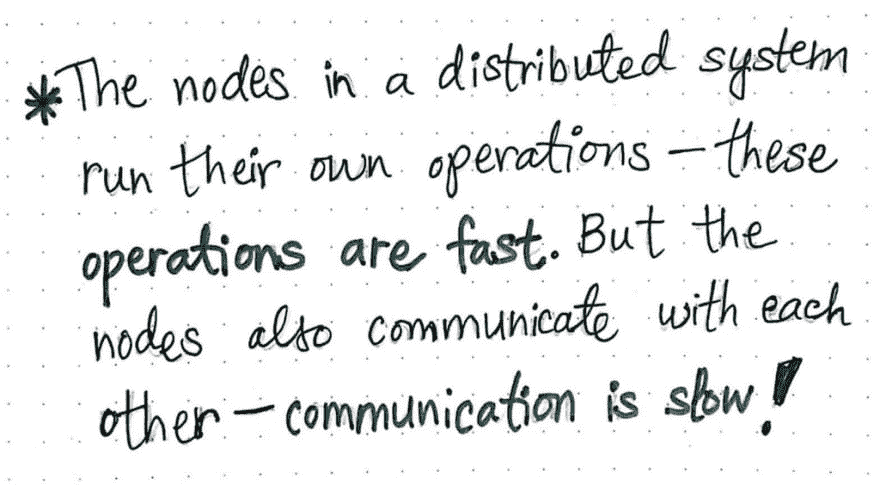 *The nodes in a distributed system
run their own operations – these
operations are fast. But the
nodes also communicate with each
other – communication is slow!